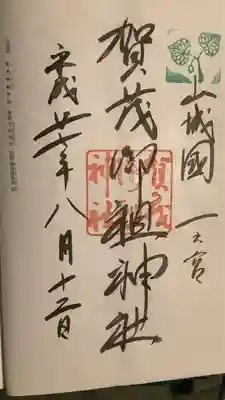 山城國
一之宮
賀茂御祖神社
賀茂御祖神社
平成廿一年八月十二日